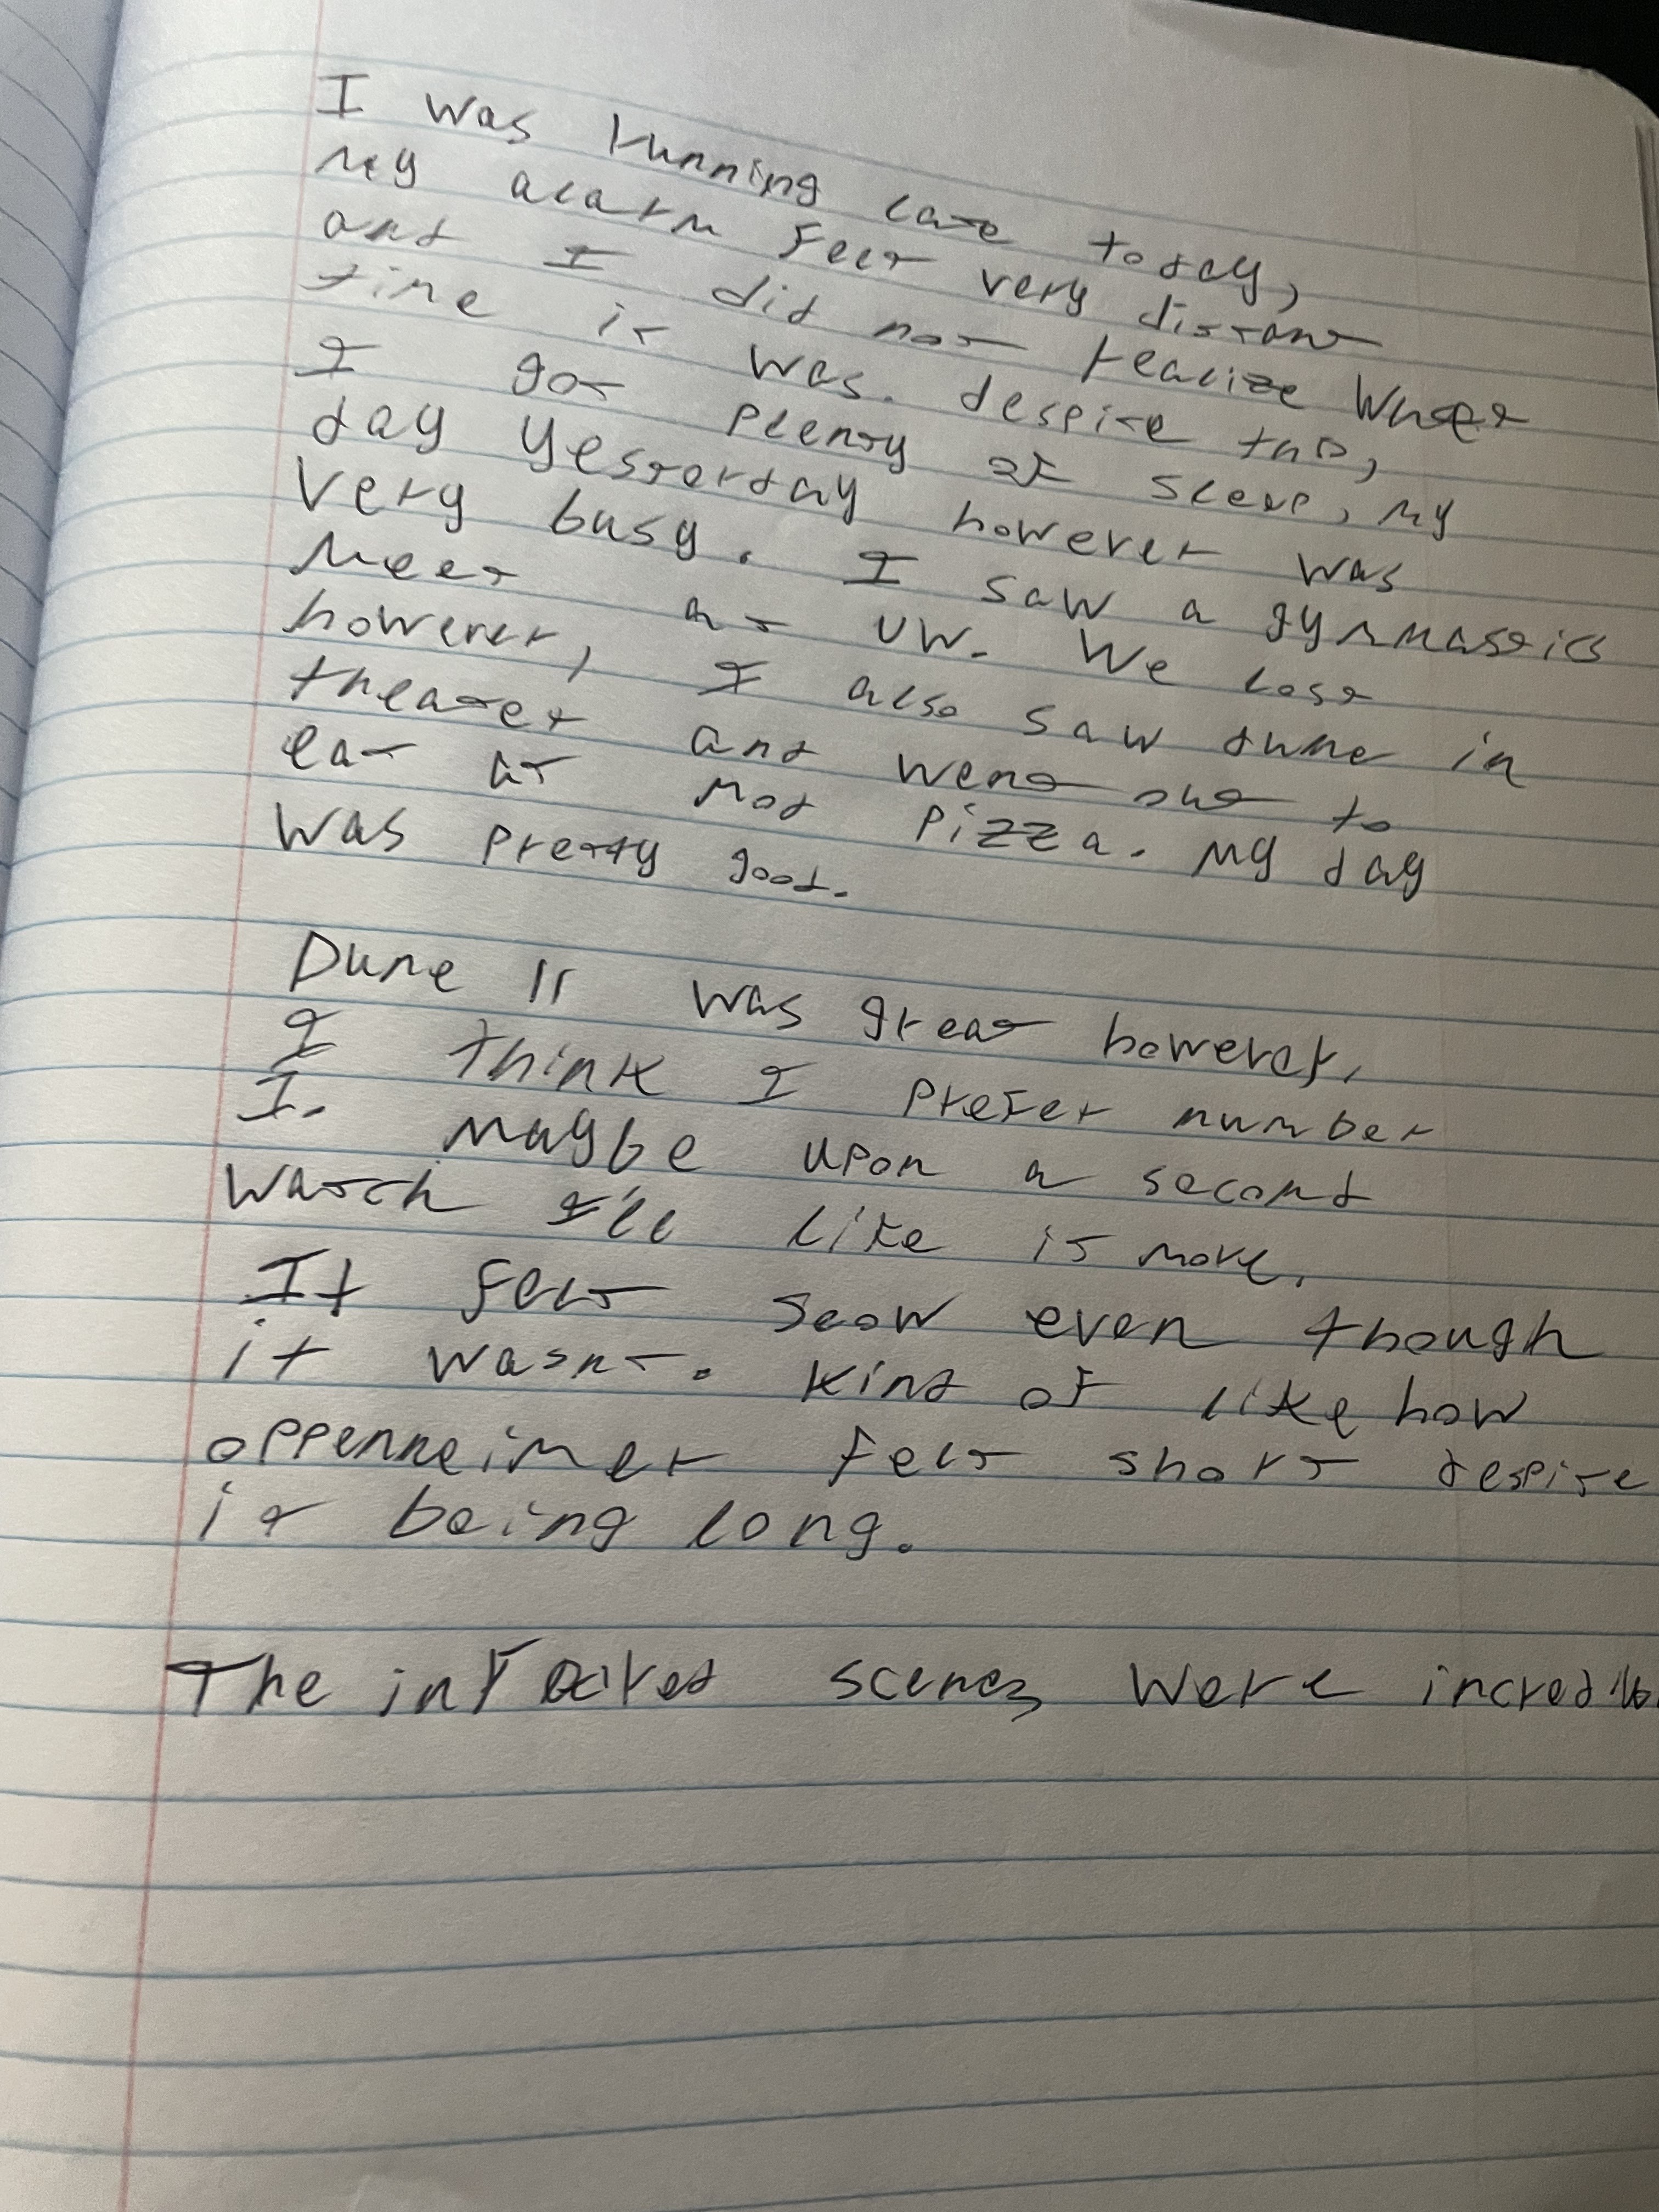 I was running late today,
my alarm felt very distant
and I did not realize what
time it was. despite this,
I got plenty of sleep, my
day yesterday however was
very busy. I saw a gymnastics
meet at UW. We lost
however, I also saw dune in
theater and went out to
eat at Mod Pizza. My day
was pretty good.
Dune II was great however,
I think I prefer number
I. Maybe upon a second
watch I'll like it more.
It felt slow even though
it wasnt. Kind of like how
oppenheimer felt short despite
it being long.
The infrared scenes were